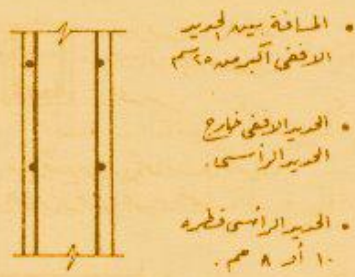 • المسافة بين الحديد
الافقى أكبر من ٢٥ سم
• الحديد الافقى خارج
الحديد الرأسى.
• الحديد الرأسى قطره
١٠ أو ٨ مم.